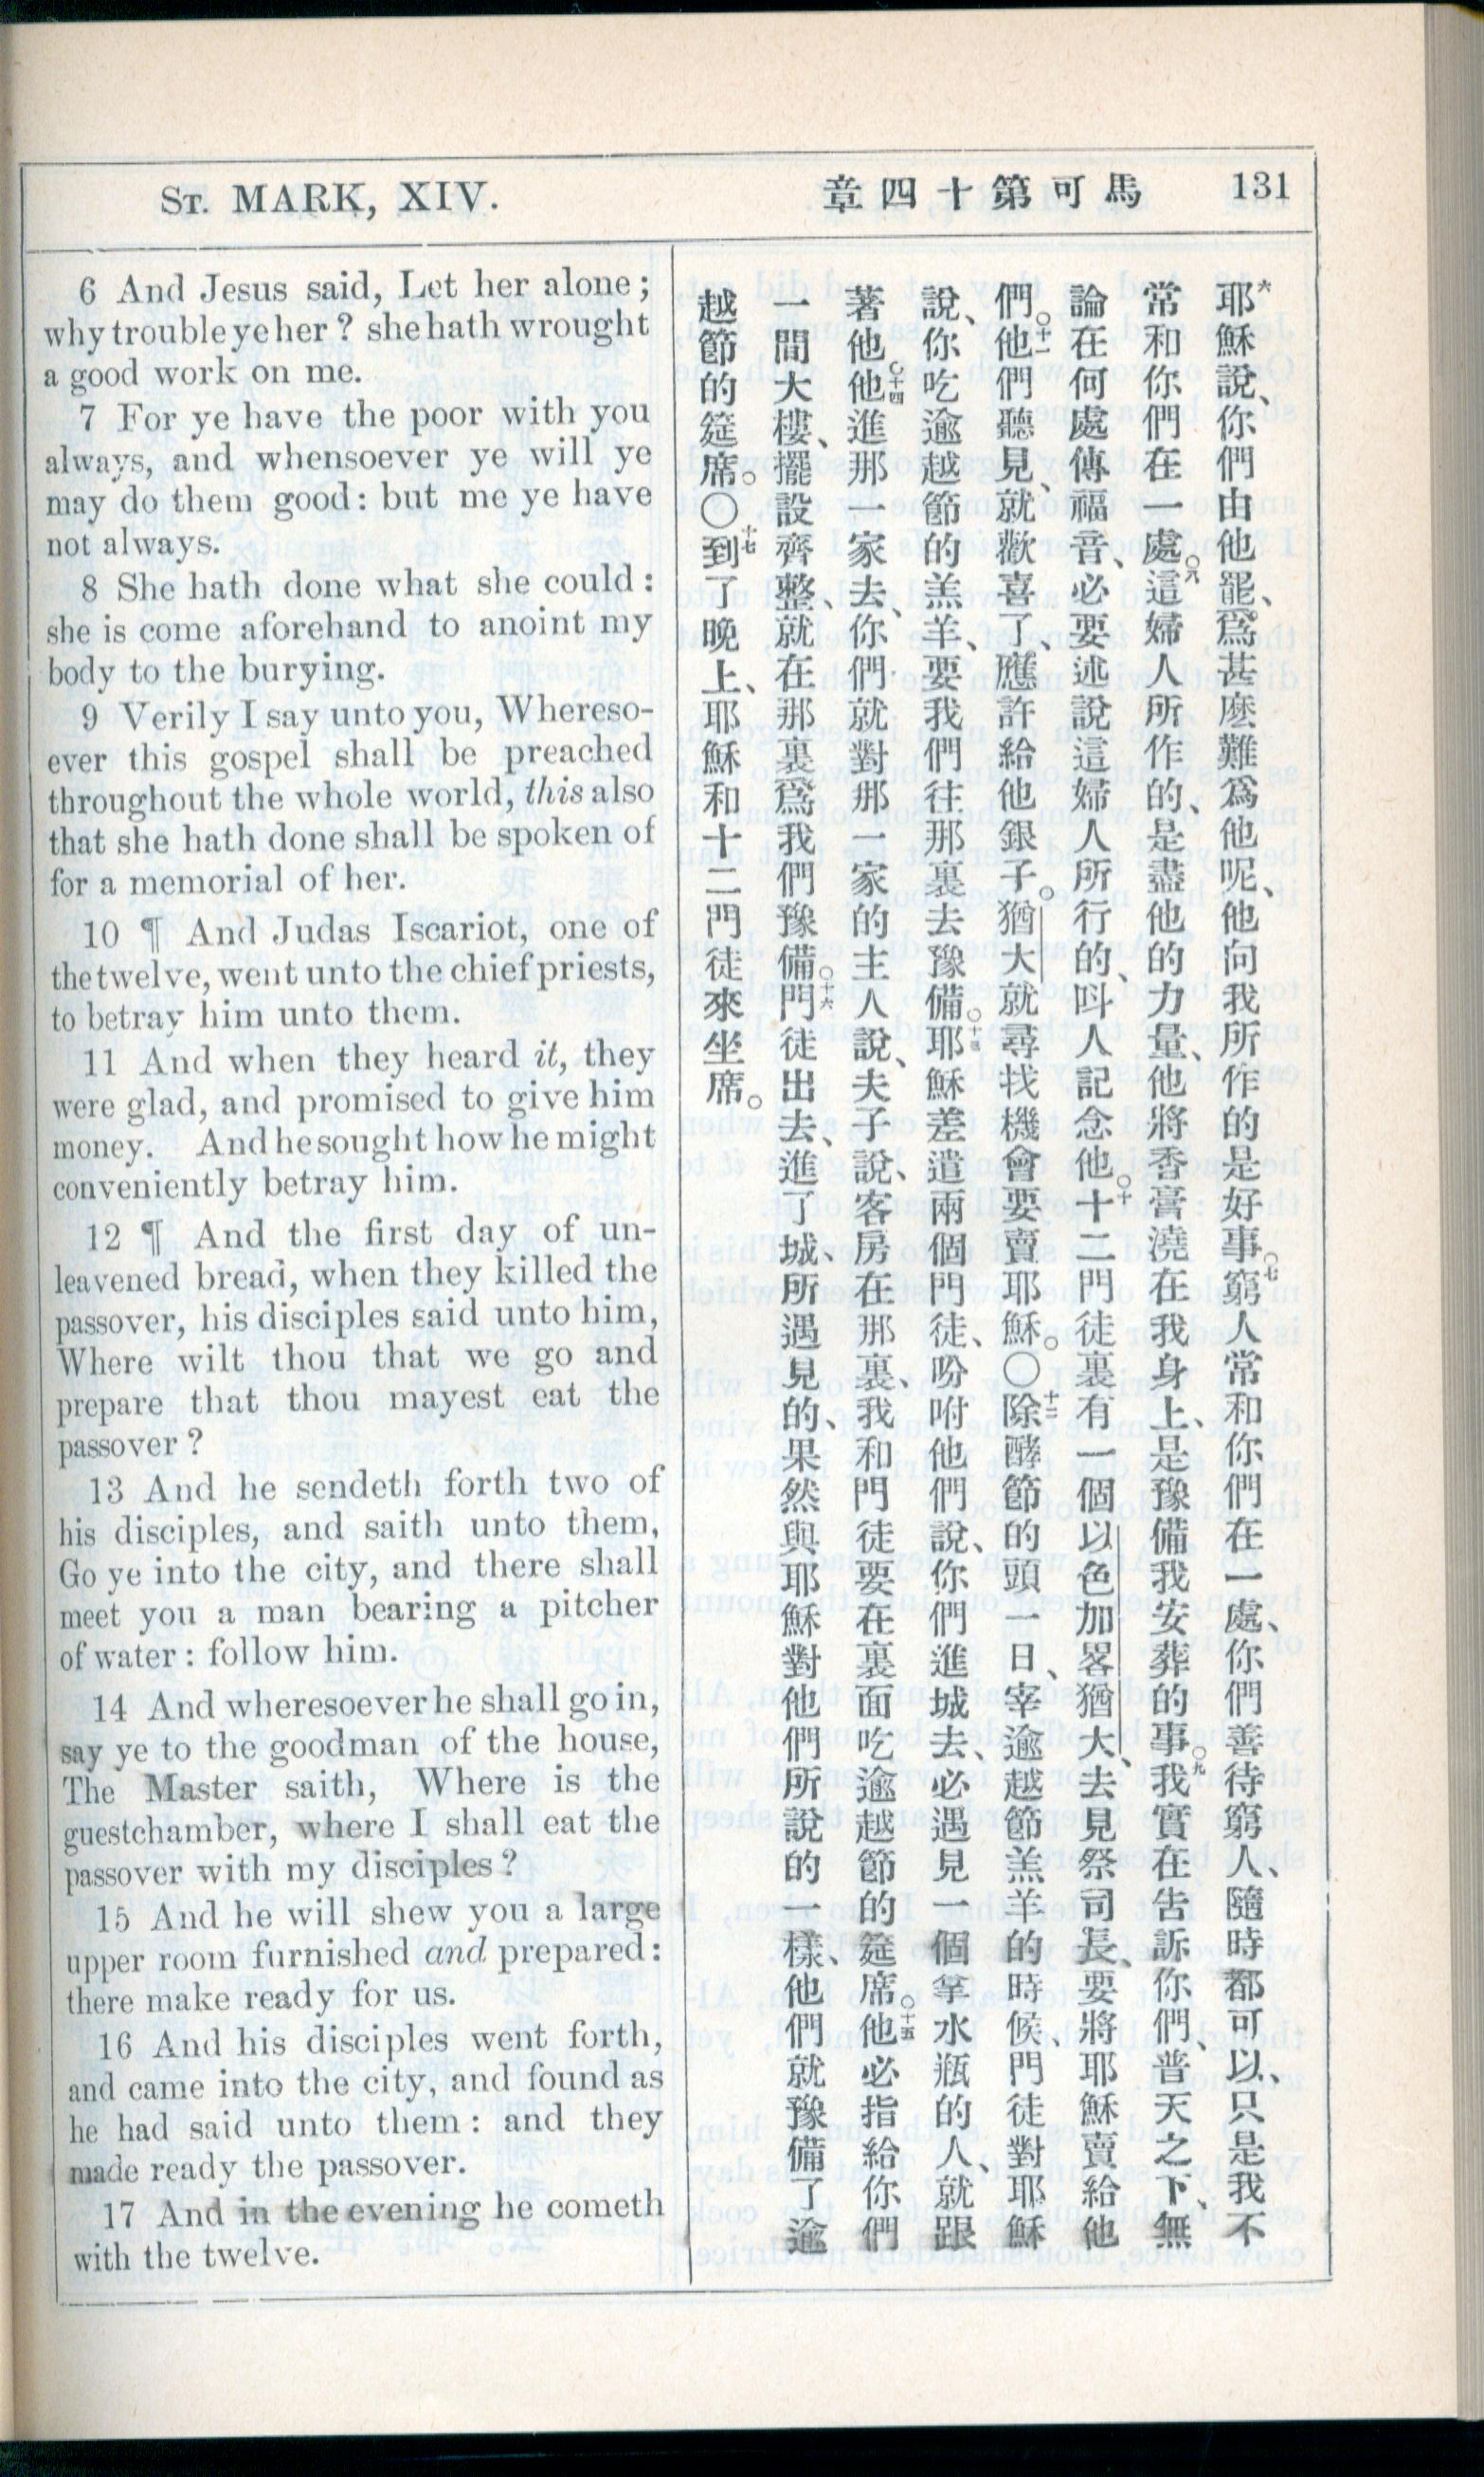 St. MARK, XIV.
章四十第可馬
131
6 And Jesus said, Let her alone;
why trouble ye her? she hath wrought
a good work on me.
7 For ye have the poor with you
always, and whensoever ye will ye
may do them good: but me ye have
not always.
8 She hath done what she could:
she is come aforehand to anoint my
body to the burying.
9 Verily I say unto you, Whereso-
ever this gospel shall be preached
throughout the whole world, this also
that she hath done shall be spoken of
for a memorial of her.
10 ¶ And Judas Iscariot, one of
the twelve, went unto the chief priests,
to betray him unto them.
11 And when they heard it, they
were glad, and promised to give him
money. And he sought how he might
conveniently betray him.
12 ¶ And the first day of un-
leavened bread, when they killed the
passover, his disciples said unto him,
Where wilt thou that we go and
prepare that thou mayest eat the
passover?
13 And he sendeth forth two of
his disciples, and saith unto them,
Go ye into the city, and there shall
meet you a man bearing a pitcher
of water: follow him.
14 And wheresoever he shall go in,
say ye to the goodman of the house,
The Master saith, Where is the
guestchamber, where I shall eat the
passover with my disciples?
15 And he will shew you a large
upper room furnished and prepared:
there make ready for us.
16 And his disciples went forth,
and came into the city, and found as
he had said unto them: and they
made ready the passover.
17 And in the evening he cometh
with the twelve.
六耶穌說、你們由他罷、爲甚麽難爲他呢、他向我所作的是好事。七窮人常和你們在一處、你們善待窮人、隨時都可以、只是我不
常和你們在一處。八這婦人所作的、是盡他的力量、他將香膏澆在我身上、是豫備我安葬的事。九我實在告訴你們、普天之下、無
論在何處傳福音、必要述說這婦人所行的、呌人記念他。十十二門徒裏有一個以色加畧猶大、去見祭司長、要將耶穌賣給他
們。十一他們聽見、就歡喜了、應許給他銀子。猶大就尋找機會要賣耶穌。〇十二除酵節的頭一日、宰逾越節羔羊的時候、門徒對耶穌
說、你吃逾越節的羔羊、要我們往那裏去豫備。十三耶穌差遣兩個門徒、吩咐他們說、你們進城去、必遇見一個拿水瓶的人、就跟
著他。十四他進那一家去、你們就對那一家的主人說、夫子說、客房在那裏、我和門徒要在裏面吃逾越節的筵席。十五他必指給你們
一間大樓、擺設齊整、就在那裏爲我們豫備。十六門徒出去、進了城、所遇見的、果然與耶穌對他們所說的一樣、他們就豫備了逾
越節的筵席。〇十七到了晚上、耶穌和十二門徒來坐席。